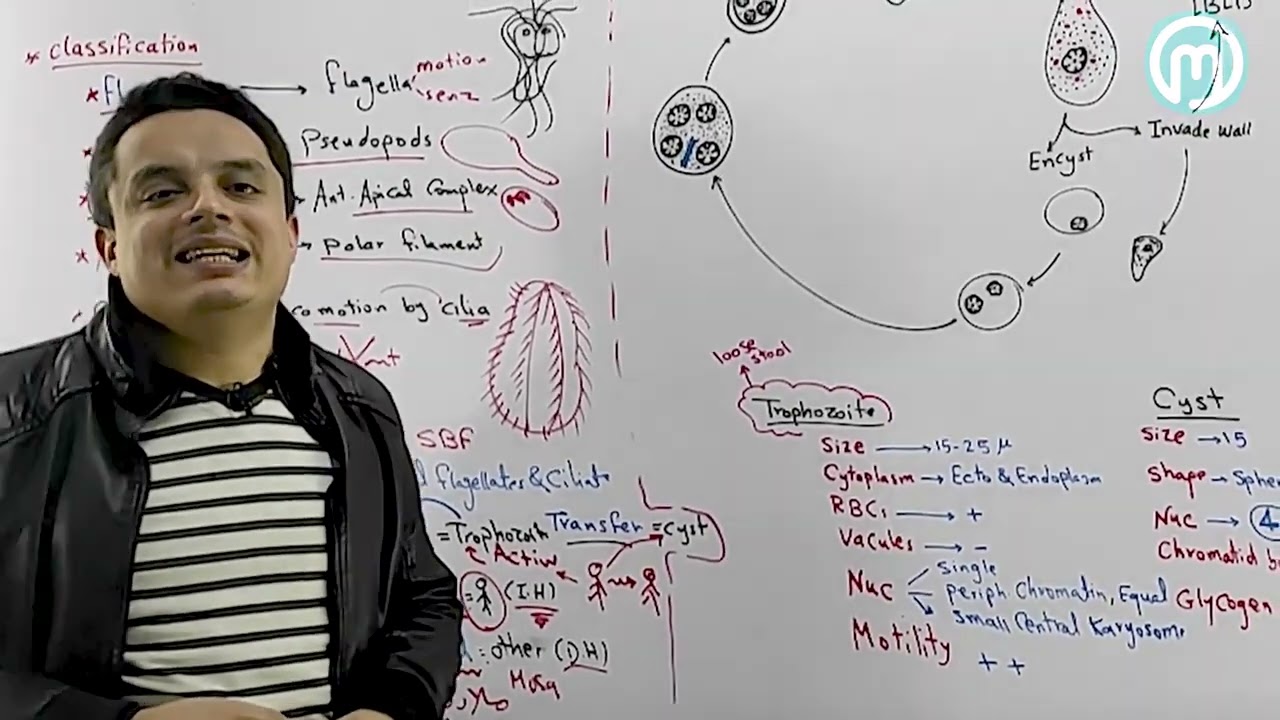 * Classification
flagella motion
senz
Pseudopods
Ant. Apical Complex
polar filament
comotion by cilia
SBF
flagellates & Ciliate
= Trophozoit Transfer = Cyst
Active
= (I.H)
: other (D.H)
loose stool
Trophozoite
Size → 15-25 μ
Cytoplasm → Ecto & Endoplasm
RBCs → +
Vacules → -
Nuc single
periph Chromatin, Equal
small Central Karyosome
Motility + +
Encyst
Invade Wall
Cyst
Size → 15
Shape → Spher
Nuc → 4
Chromatid b
Glycogen
m